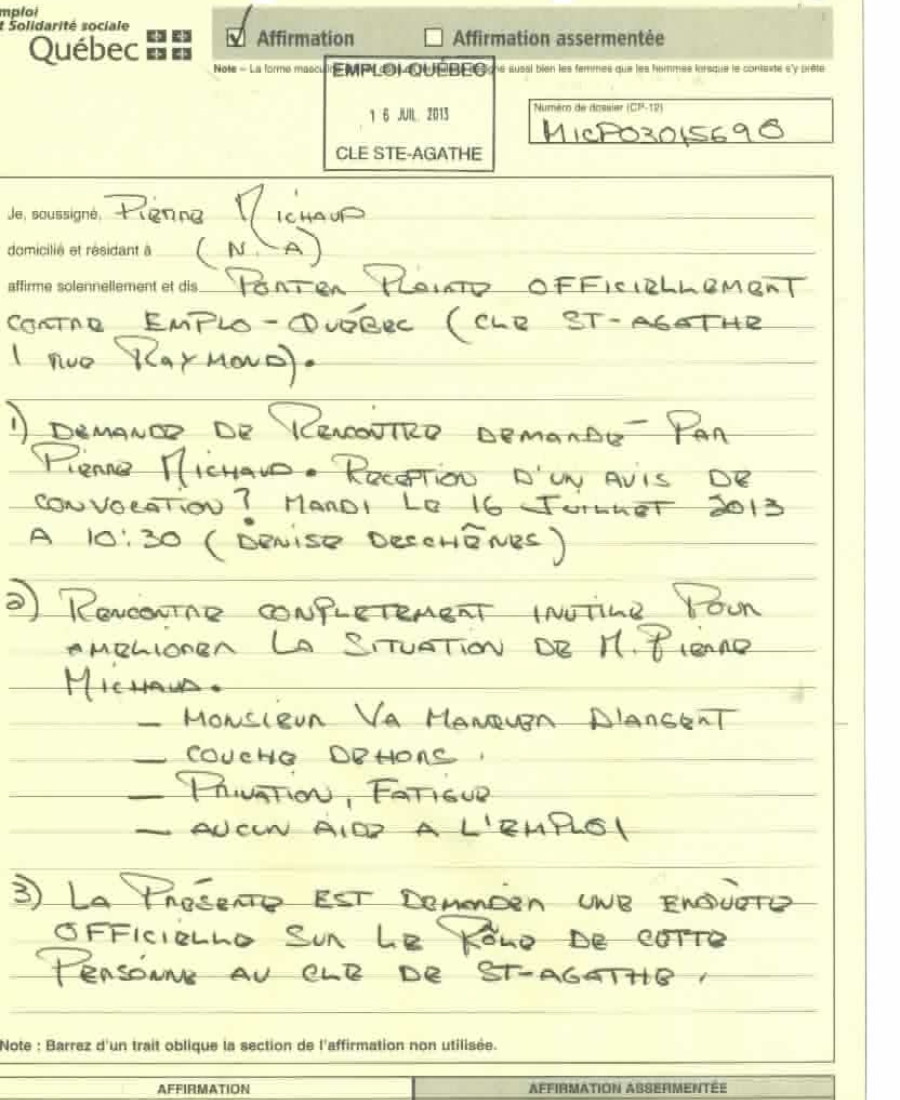 mploi
t Solidarité sociale
Québec
Affirmation
Affirmation assermentée
EMPLOI-QUÉBEC
16 JUIL. 2013
CLE STE-AGATHE
Numéro de dossier (CP-12)
Je, soussigné, Pierre Michaud
domicilié et résidant à (N.A)
affirme solennellement et dis PORTER PLAINTE OFFICIELLEMENT
CONTRE EMPLO-QUÉBEC (CLE ST-AGATHE
1 RUE RAYMOND).
1) DEMANDE DE RENCONTRE DEMANDÉ PAR
PIERRE MICHAUD. RECEPTION D'UN AVIS DE
CONVOCATION? MARDI LE 16 JUILLET 2013
A 10:30 (DENISE DESCHÊNES)
2) RENCONTRE COMPLETEMENT INUTILE POUR
AMELIORER LA SITUATION DE M. PIERRE
MICHAUD.
— MONSIEUR VA MANQUER D'ARGENT
— COUCHE DEHORS.
— PRIVATION, FATIGUE
— AUCUN AIDE A L'EMPLOI
3) LA PRÉSENTE EST DEMANDER UNE ENQUÈTE
OFFICIELLE SUR LE RÔLE DE CETTE
PERSONNE AU CLE DE ST-AGATHE.
Note : Barrez d'un trait oblique la section de l'affirmation non utilisée.
AFFIRMATION
AFFIRMATION ASSERMENTÉE